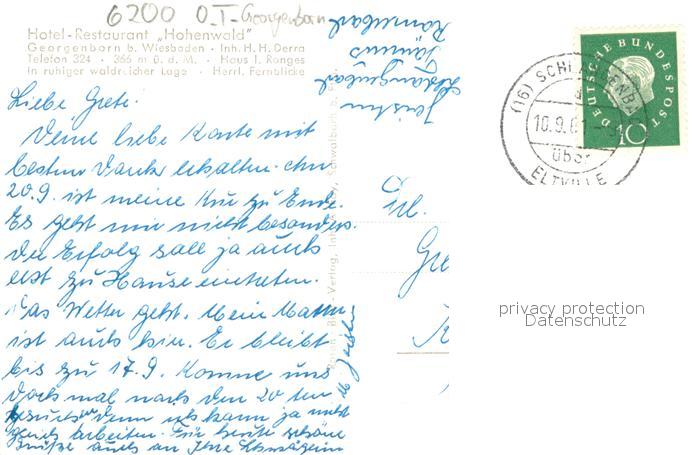 6200 O.T. Georgenborn
Hotel-Restaurant „Hohenwald"
Georgenborn b. Wiesbaden · Inh. H. H. Derra
Telefon 324 · 366 m ü. d. M. · Haus I. Ranges
In ruhiger waldreicher Lage · Herrl. Fernblicke
Liebe Grete.
Deine liebe Karte mit
besten Dank erhalten. Am
20.9. ist meine Kur zu Ende.
Es geht mir nicht besonders.
der Erfolg soll ja auch
erst zu Hause eintreten.
Das Wetter geht. Mein Mann
ist auch hier. Er bleibt
bis zu 17.9. Komme uns
doch mal nach den 20 ten
besuchen denn ich kann ja nicht
gleich arbeiten. Für heute schöne
Grüße auch an Ihre Schwägerin
Taunus
Verlag
Schwalbach b.
Frl.
Gre
K
DEUTSCHE BUNDESPOST
10
(16) SCHLANGENBAD
10.9.61
über
ELTVILLE
privacy protection
Datenschutz